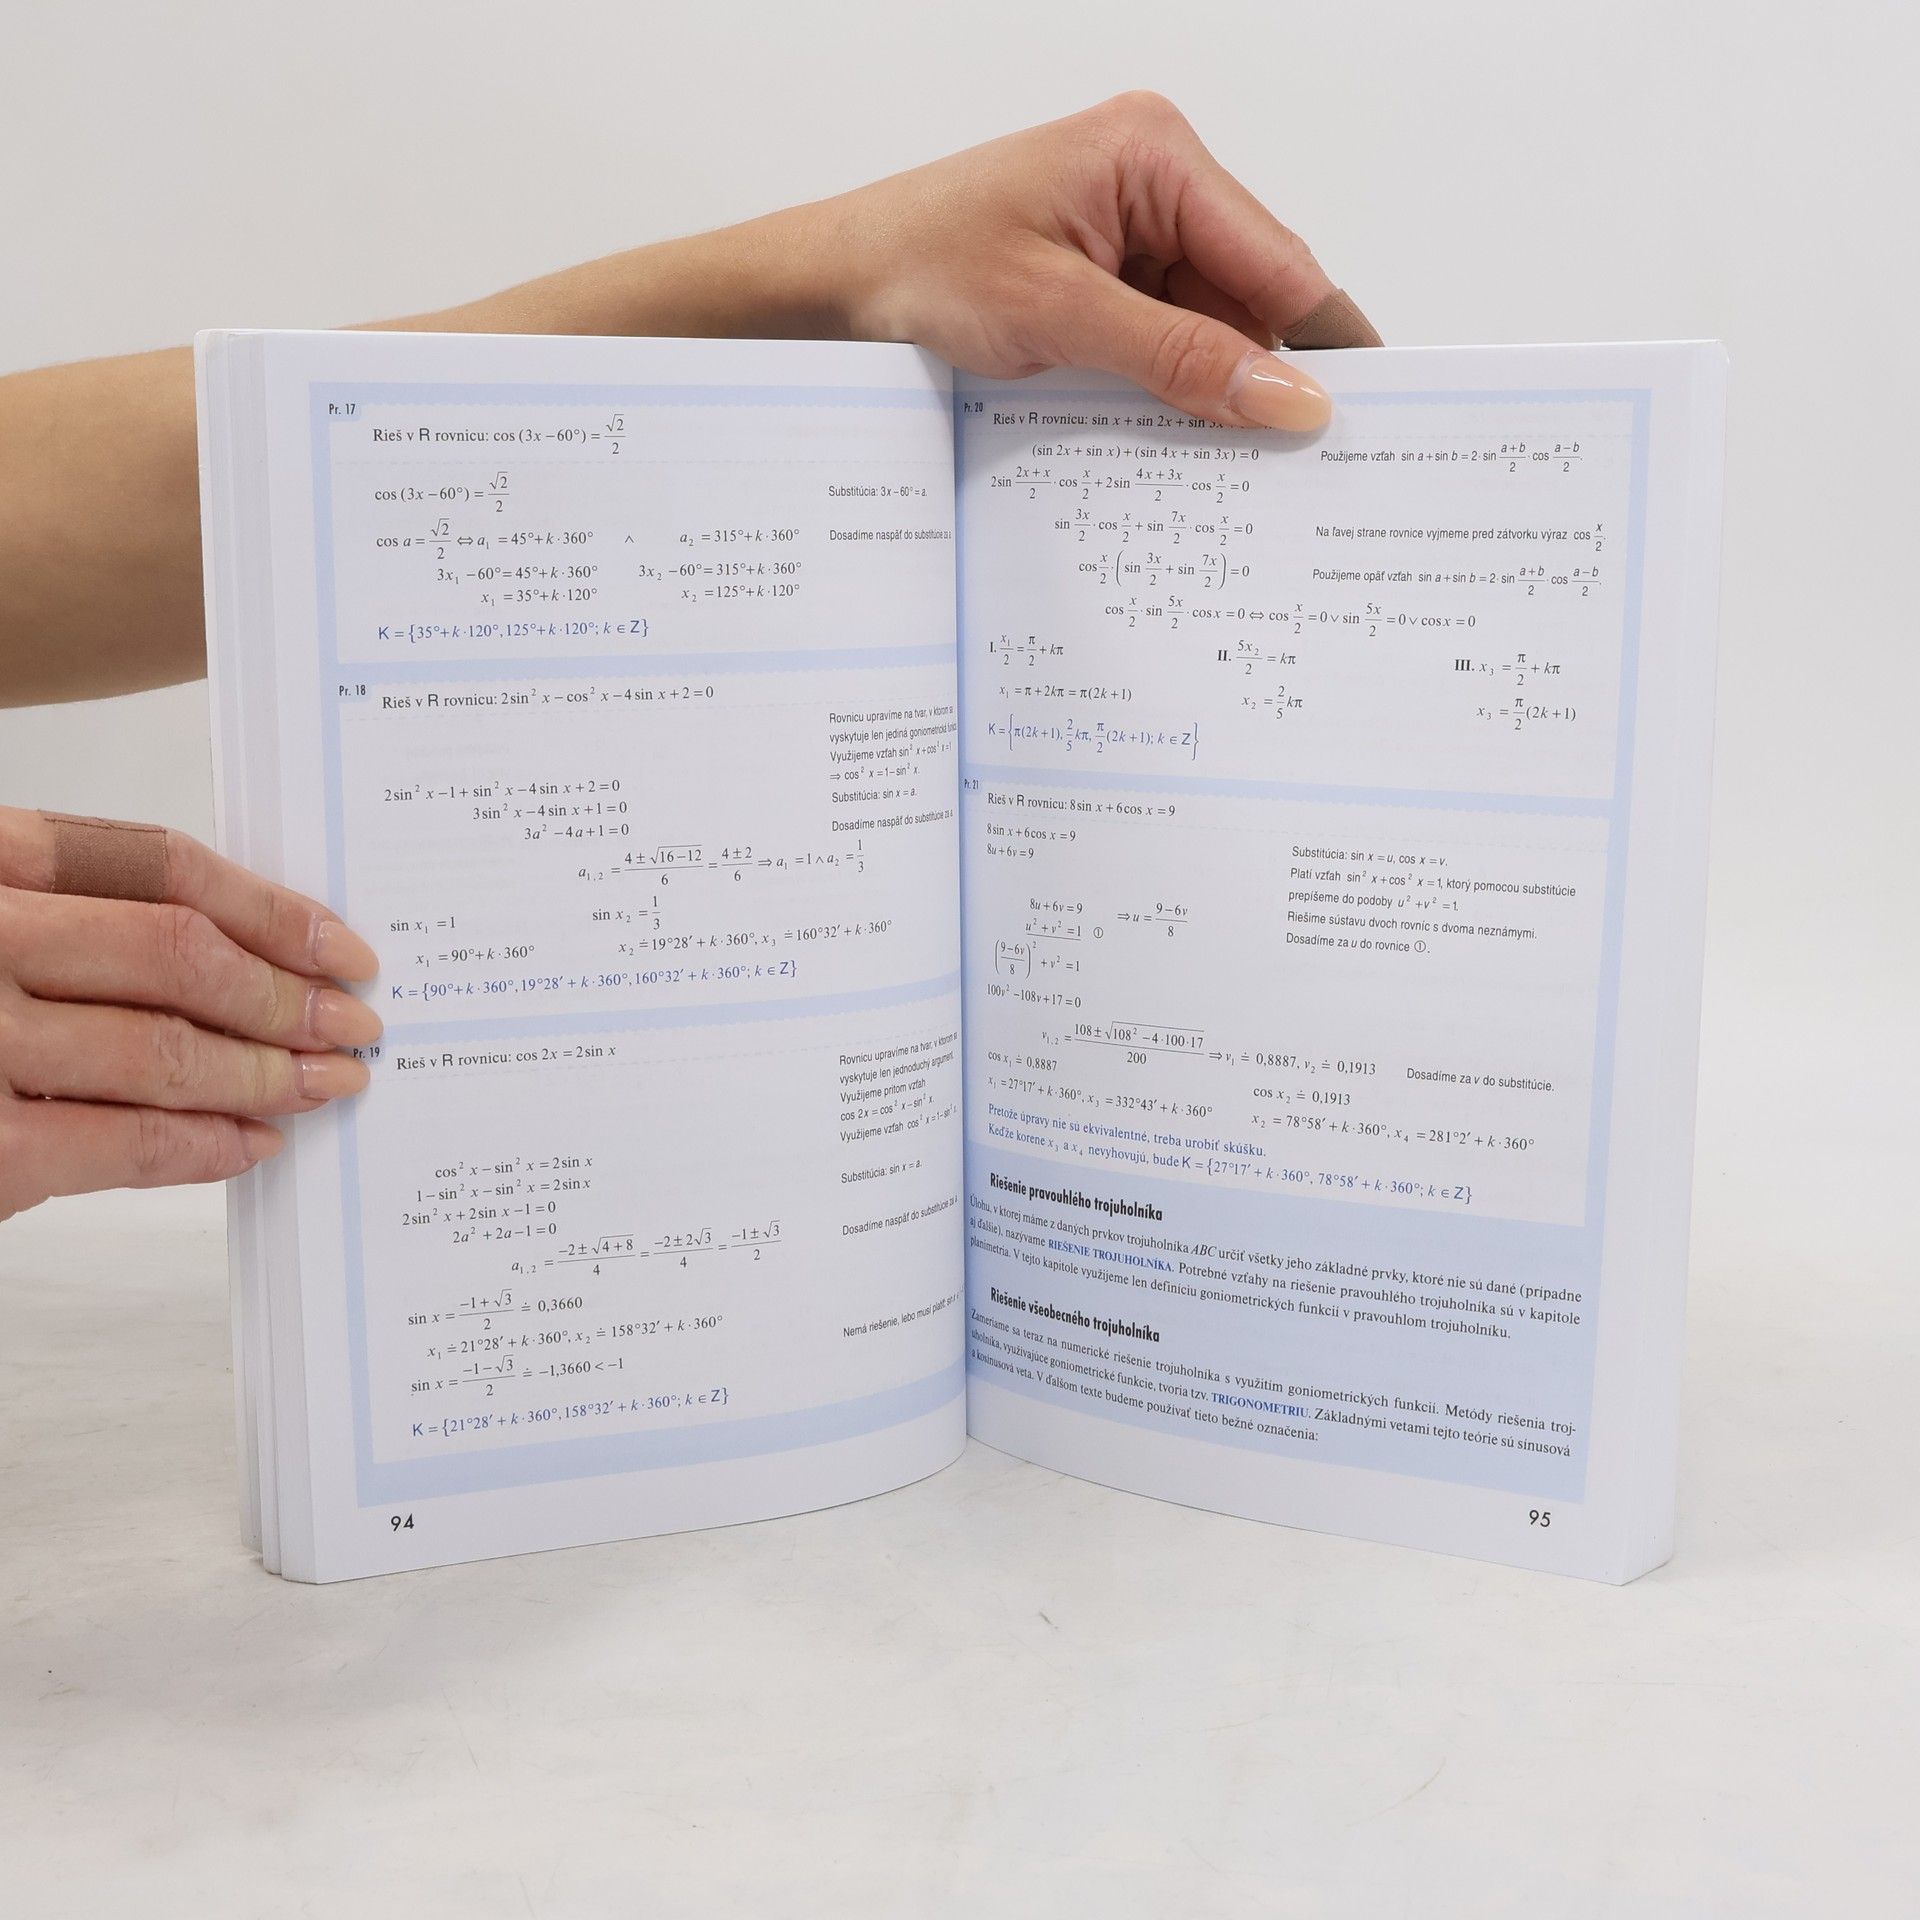 Pr. 17
Rieš v R rovnicu: cos (3x – 60°) = √2/2
cos (3x – 60°) = √2/2 Substitúcia: 3x – 60° = a.
cos a = √2/2 ⇔ a₁ = 45°+ k · 360° ∧ a₂ = 315°+ k · 360° Dosadíme naspäť do substitúcie za a
3x₁ – 60° = 45°+ k · 360° 3x₂ – 60° = 315°+ k · 360°
x₁ = 35°+ k · 120° x₂ = 125°+ k · 120°
K = {35°+ k · 120°, 125°+ k · 120°; k ∈ Z}
Pr. 18
Rieš v R rovnicu: 2 sin² x – cos² x – 4 sin x + 2 = 0
Rovnicu upravíme na tvar, v ktorom sa
vyskytuje len jediná goniometrická
Využijeme vzťah sin² x + cos² x = 1
⇒ cos² x = 1 – sin² x.
2 sin² x – 1 + sin² x – 4 sin x + 2 = 0
Substitúcia: sin x = a.
3 sin² x – 4 sin x + 1 = 0
3a² – 4a + 1 = 0 Dosadíme naspäť do substitúcie za a
a₁,₂ = (4 ± √(16 – 12))/6 = (4 ± 2)/6 ⇒ a₁ = 1 ∧ a₂ = 1/3
sin x₁ = 1 sin x₂ = 1/3
x₁ = 90°+ k · 360° x₂ ≐ 19°28′ + k · 360°, x₃ ≐ 160°32′ + k · 360°
K = {90°+ k · 360°, 19°28′ + k · 360°, 160°32′ + k · 360°; k ∈ Z}
Pr. 19
Rieš v R rovnicu: cos 2x = 2 sin x
Rovnicu upravíme na tvar, v ktorom sa
vyskytuje len jednoduchý argument.
Využijeme pritom vzťah
cos 2x = cos² x – sin² x.
Využijeme vzťah cos² x = 1 – sin² x.
cos² x – sin² x = 2 sin x
1 – sin² x – sin² x = 2 sin x
2 sin² x + 2 sin x – 1 = 0 Substitúcia: sin x = a.
2a² + 2a – 1 = 0
a₁,₂ = (–2 ± √(4 + 8))/4 = (–2 ± 2√3)/4 = (–1 ± √3)/2 Dosadíme naspäť do substitúcie za a
sin x = (–1 + √3)/2 ≐ 0,3660
x₁ ≐ 21°28′ + k · 360°, x₂ ≐ 158°32′ + k · 360°
sin x = (–1 – √3)/2 ≐ –1,3660 < –1 Nemá riešenie, lebo musí platiť: sin x
K = {21°28′ + k · 360°, 158°32′ + k · 360°; k ∈ Z}
94
Pr. 20
Rieš v R rovnicu: sin x + sin 2x + sin
(sin 2x + sin x) + (sin 4x + sin 3x) = 0 Použijeme vzťah sin a + sin b = 2 · sin (a+b)/2 · cos (a–b)/2.
2 sin (2x + x)/2 · cos x/2 + 2 sin (4x + 3x)/2 · cos x/2 = 0
sin 3x/2 · cos x/2 + sin 7x/2 · cos x/2 = 0 Na ľavej strane rovnice vyjmeme pred zátvorku výraz cos x/2.
cos x/2 · (sin 3x/2 + sin 7x/2) = 0 Použijeme opäť vzťah sin a + sin b = 2 · sin (a+b)/2 · cos (a–b)/2.
cos x/2 · sin 5x/2 · cos x = 0 ⇔ cos x/2 = 0 ∨ sin 5x/2 = 0 ∨ cos x = 0
I. x₁/2 = π/2 + kπ II. 5x₂/2 = kπ III. x₃ = π/2 + kπ
x₁ = π + 2kπ = π(2k + 1) x₂ = 2/5 kπ x₃ = π/2 (2k + 1)
K = {π(2k + 1), 2/5 kπ, π/2 (2k + 1); k ∈ Z}
Pr. 21
Rieš v R rovnicu: 8 sin x + 6 cos x = 9
8 sin x + 6 cos x = 9
8u + 6v = 9 Substitúcia: sin x = u, cos x = v.
Platí vzťah sin² x + cos² x = 1, ktorý pomocou substitúcie
prepíšeme do podoby u² + v² = 1.
8u + 6v = 9 ⇒ u = (9 – 6v)/8 Riešime sústavu dvoch rovníc s dvoma neznámymi.
u² + v² = 1 ① Dosadíme za u do rovnice ①.
((9 – 6v)/8)² + v² = 1
100v² – 108v + 17 = 0
v₁,₂ = (108 ± √(108² – 4 · 100 · 17))/200 ⇒ v₁ ≐ 0,8887, v₂ ≐ 0,1913 Dosadíme za v do substitúcie.
cos x₁ ≐ 0,8887 cos x₂ ≐ 0,1913
x₁ = 27°17′ + k · 360°, x₃ = 332°43′ + k · 360° x₂ = 78°58′ + k · 360°, x₄ = 281°2′ + k · 360°
Pretože úpravy nie sú ekvivalentné, treba urobiť skúšku.
Keďže korene x₃ a x₄ nevyhovujú, bude K = {27°17′ + k · 360°, 78°58′ + k · 360°; k ∈ Z}
Riešenie pravouhlého trojuholníka
Úlohu, v ktorej máme z daných prvkov trojuholníka ABC určiť všetky jeho základné prvky, ktoré nie sú dané (prípadne
aj ďalšie), nazývame RIEŠENIE TROJUHOLNÍKA. Potrebné vzťahy na riešenie pravouhlého trojuholníka sú v kapitole
planimetria. V tejto kapitole využijeme len definíciu goniometrických funkcií v pravouhlom trojuholníku.
Riešenie všeobecného trojuholníka
Zameriame sa teraz na numerické riešenie trojuholníka s využitím goniometrických funkcií. Metódy riešenia troj-
uholníka, využívajúce goniometrické funkcie, tvoria tzv. TRIGONOMETRIU. Základnými vetami tejto teórie sú sínusová
a kosínusová veta. V ďalšom texte budeme používať tieto bežné označenia:
95